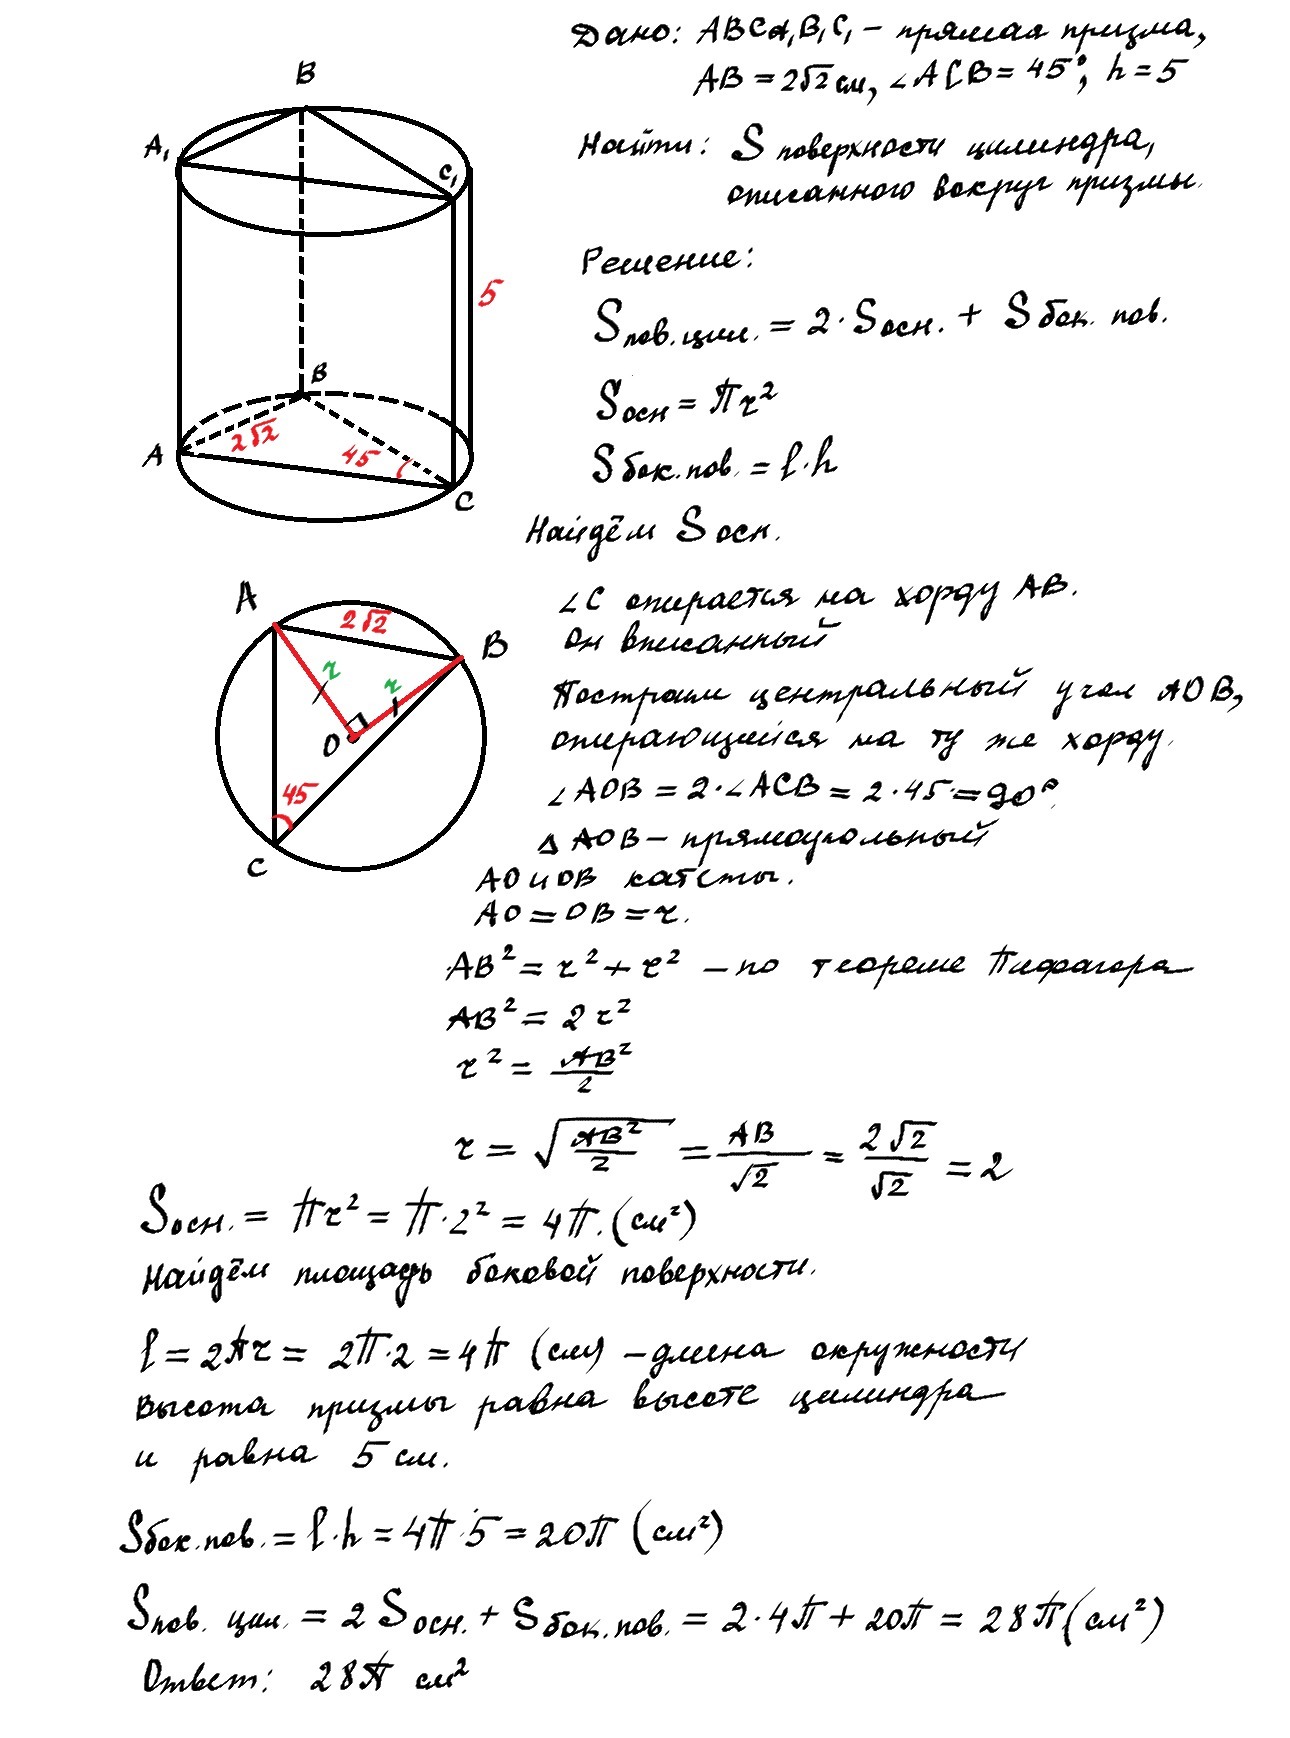 Дано: ABCA₁B₁C₁ – прямая призма,
AB = 2√2 см, ∠ACB = 45°, h = 5
Найти: S поверхности цилиндра,
описанного вокруг призмы.
Решение:
S пов. цил. = 2 · S осн. + S бок. пов.
S осн = πr²
S бок. пов. = l · h
Найдём S осн.
B
A₁
C₁
5
B
2√2
45
A
C
∠C опирается на хорду AB.
Он вписанный
Построим центральный угол AOB,
опирающийся на ту же хорду.
∠AOB = 2·∠ACB = 2·45 = 90°
Δ AOB – прямоугольный
AO и OB катеты.
AO = OB = r.
A
2√2
B
r
r
O
45
C
AB² = r² + r² – по теореме Пифагора
AB² = 2r²
r² = AB²/2
r = √(AB²/2) = AB/√2 = 2√2/√2 = 2
S осн. = πr² = π·2² = 4π. (см²)
Найдём площадь боковой поверхности.
l = 2πr = 2π·2 = 4π (см) – длина окружности
Высота призмы равна высоте цилиндра
и равна 5 см.
S бок. пов. = l · h = 4π·5 = 20π (см²)
S пов. цил. = 2 S осн. + S бок. пов. = 2·4π + 20π = 28π (см²)
Ответ: 28π см²